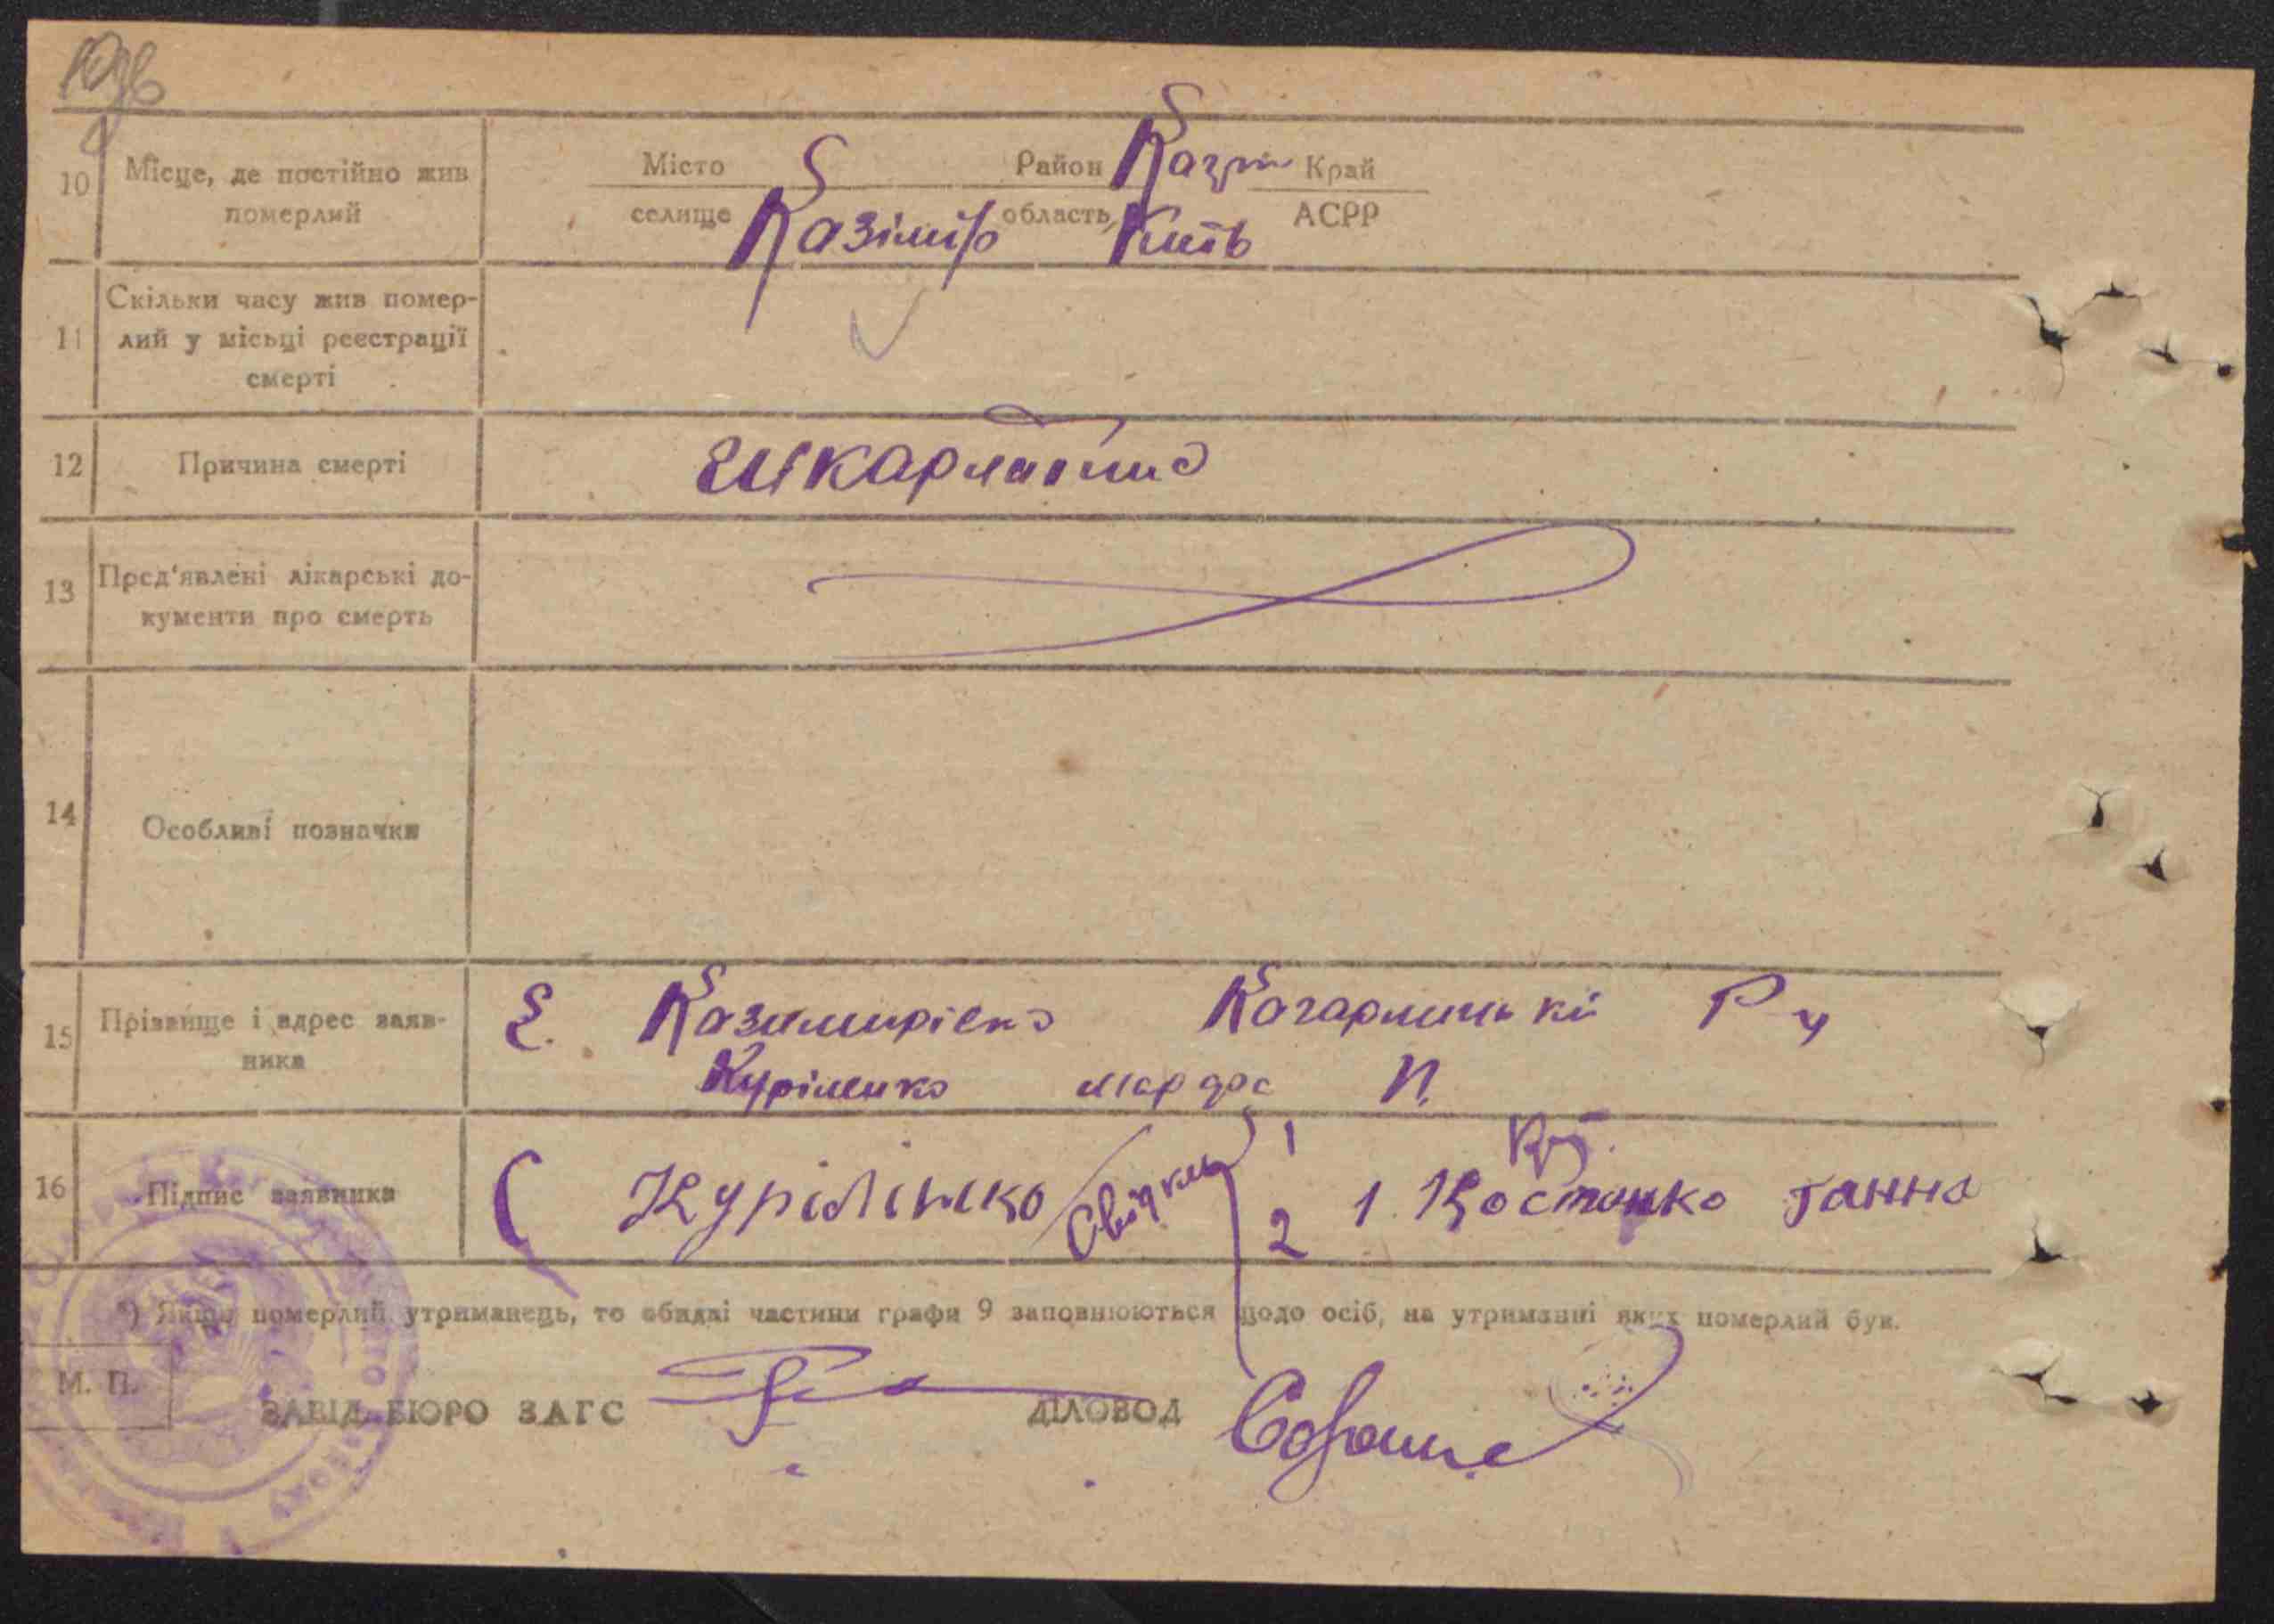 10 Місце, де постійно жив померлий
Місто Район Кагрл Край
селище Казімір область Київ АСРР
11 Скільки часу жив помер-
лий у місьці реєстрації
смерті
12 Причина смерті Шкарлатина
13 Пред'явлені лікарські до-
кументи про смерть
14 Особливі позначки
15 Прізвище і адрес заяв-
ника
с. Казимирівка Кагарлицький Р н
Куріленко Марфа П.
16 Підпис заявника ( Курілінко Свідки 1
2 1. Костенко Ганна
*) Якщо померлий утриманець, то обидві частини графи 9 заповнюються щодо осіб, на утриманні яких померлий був.
М. П.
ЗАВІД. БЮРО ЗАГС ДІЛОВОД